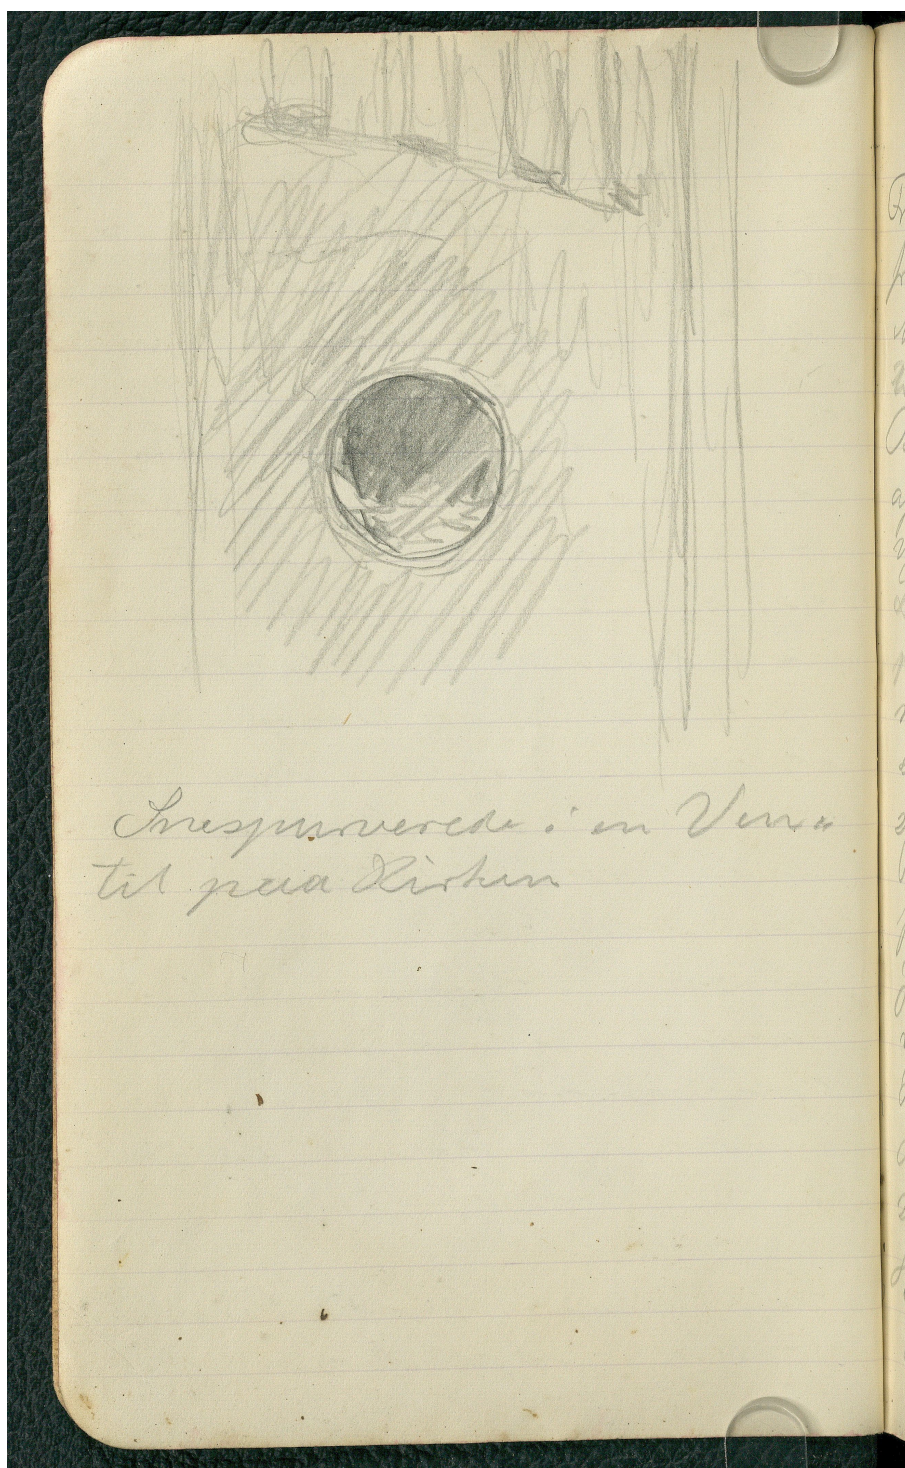 Snespurverede i en Ven„
til paa Kirken